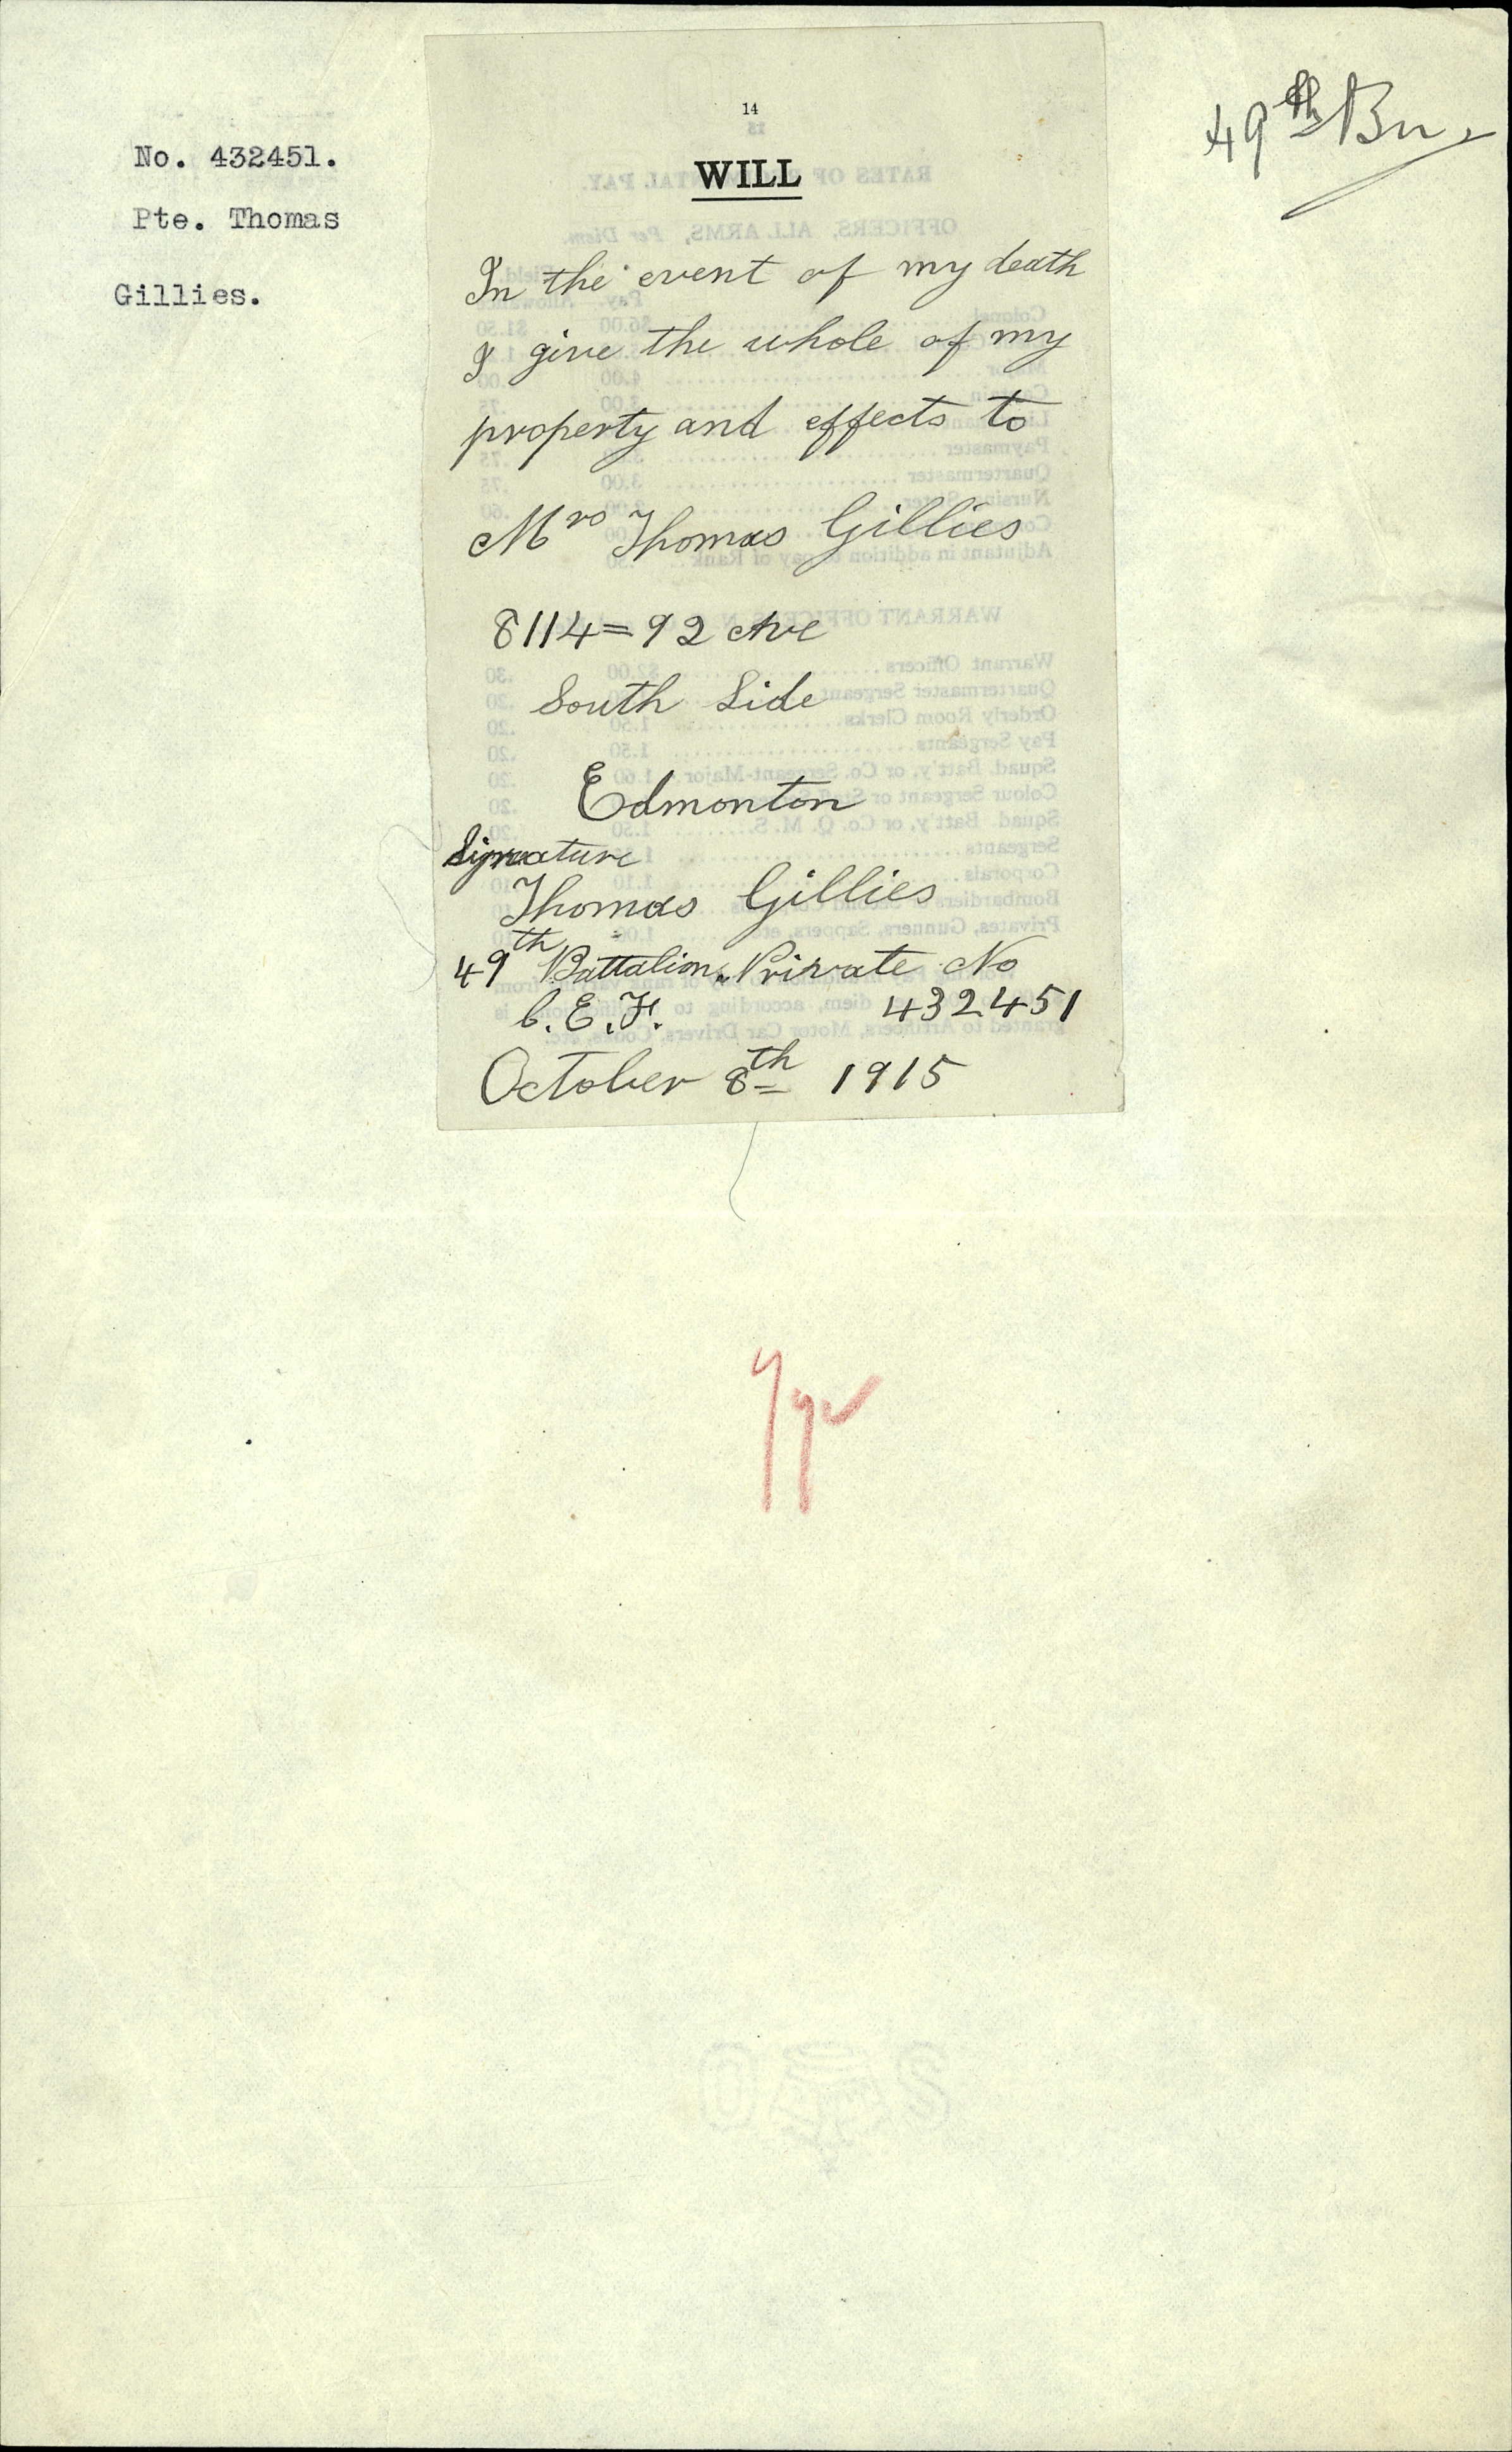 No. 432451.
Pte. Thomas
Gillies.
49th Bn.
14
WILL
In the event of my death
I give the whole of my
property and effects to
Mrs Thomas Gillies
8114=92 Ave
South Side
Edmonton
Signature
Thomas Gillies
49th Battalion. Private No
C.E.F. 432451
October 8th 1915